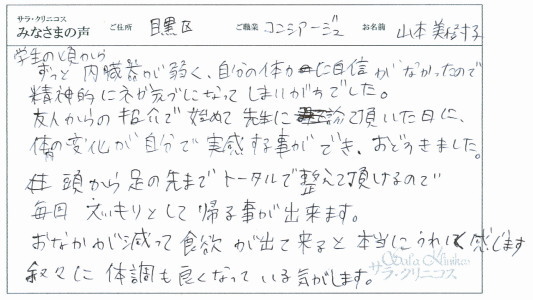 サラ・クリニコス
みなさまの声 ご住所 目黒区 ご職業 コンシアージュ お名前 山本 美保子
学生の頃から
ずっと 内臓器が弱く、自分の体に自信がなかったので
精神的にネガティブになってしまいがちでした。
友人からの紹介で始めて先生に診て頂いた日に、
体の変化が自分で実感する事ができ、おどろきました。
頭から足の先までトータルで整えて頂けるので
毎回 スッキリとして帰る事が出来ます。
おなかが減って食欲が出て来ると本当にうれしく感じます
叙々に体調も良くなっている気がします。
Sala Kliniko
サラ・クリニコス